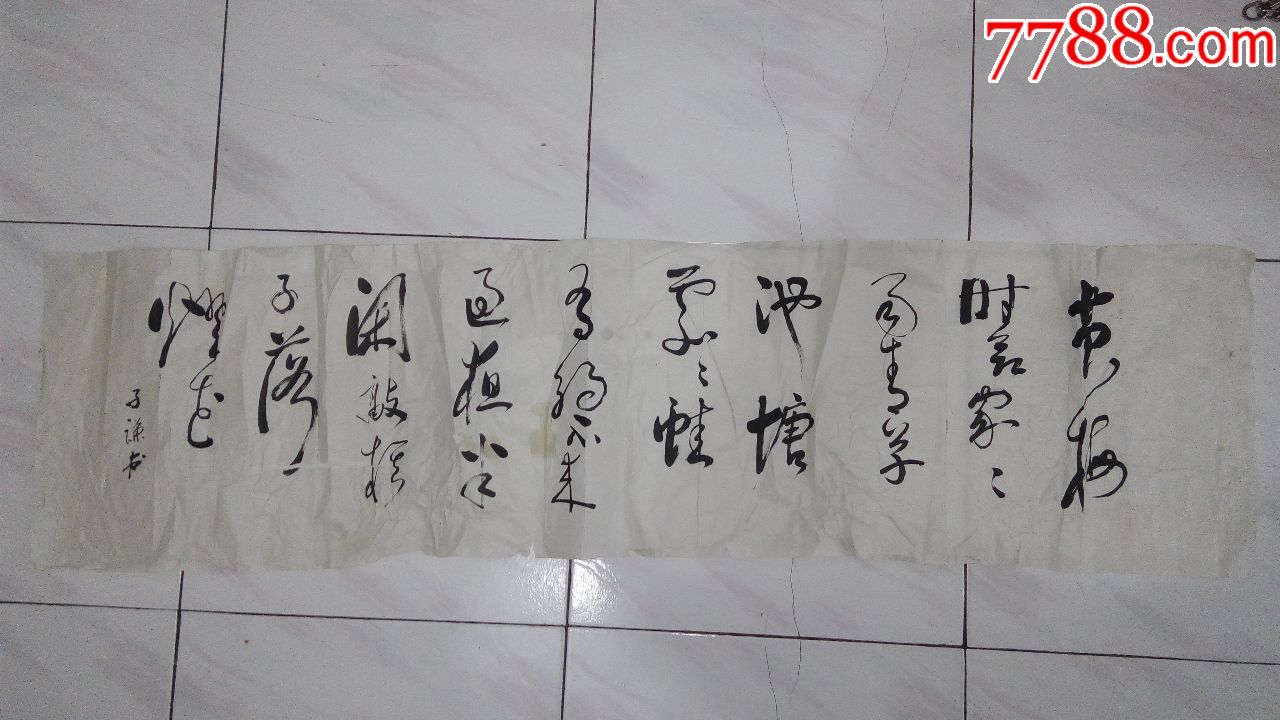 7788.com
黄梅
时节家々
雨青草
池塘
處々蛙
有約不来
過夜半
闲敲棋
子落
燈花
子謙书